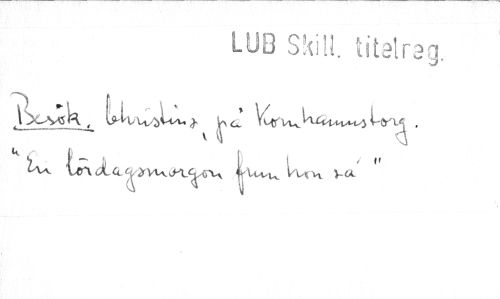 LUB Skill. titelreg.
Besök, Christins, på Kornhamnstorg.
"En lördagsmorgon frun hon sa"